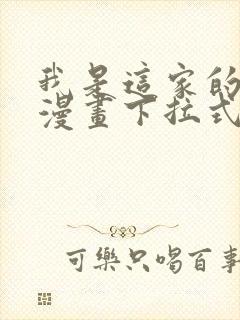 我是這家的
漫畫下拉式
可樂只喝百事